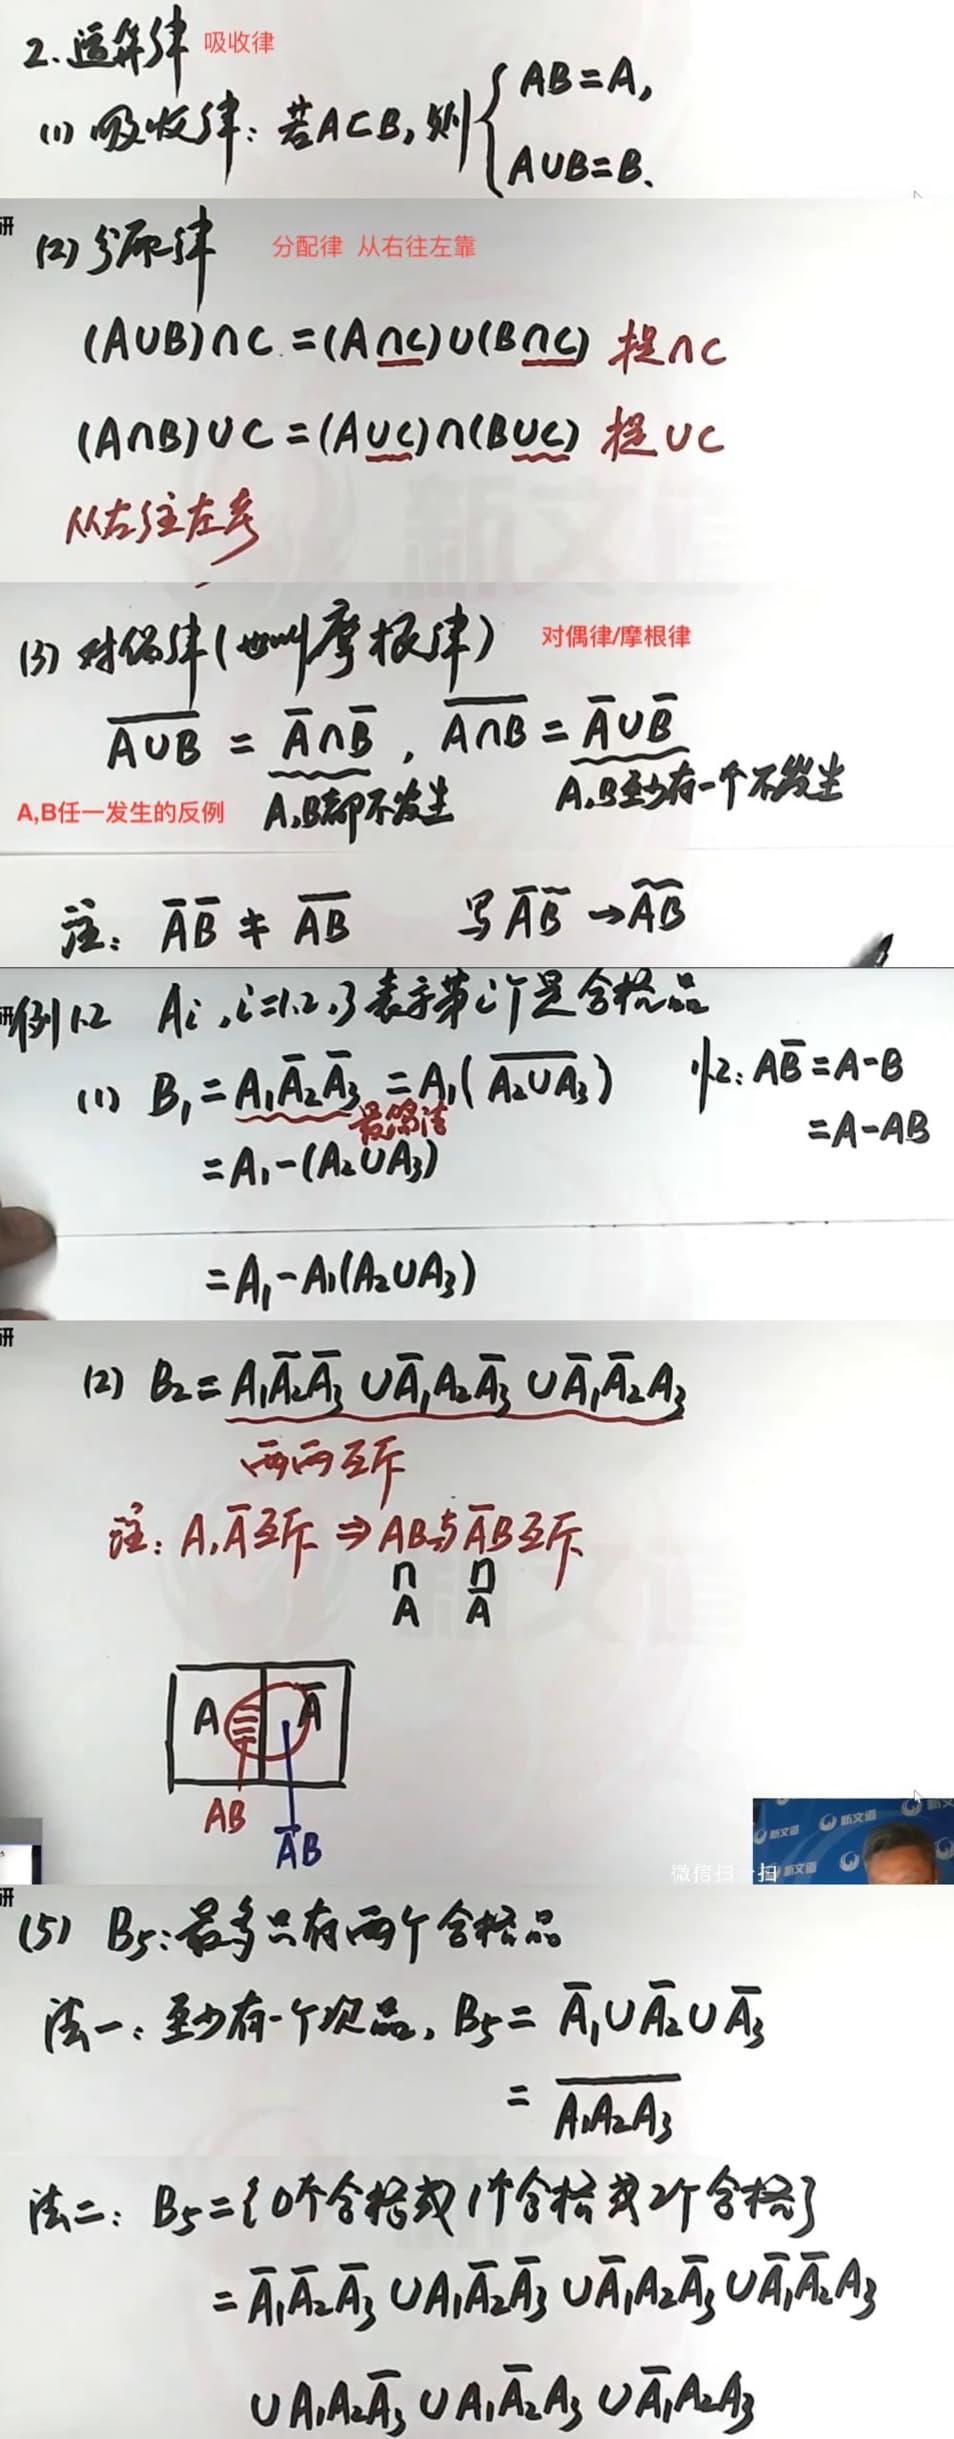 2. 运算律 吸收律
(1) 吸收律: 若A⊂B, 则{AB=A,
A∪B=B.
研
(2) 分配律 分配律 从右往左靠
(A∪B)∩C=(A∩C)∪(B∩C) 提∩C
(A∩B)∪C=(A∪C)∩(B∪C) 提∪C
从右往左考
(3) 对偶律(也叫摩根律) 对偶律/摩根律
\overline{A∪B} = \overline{A}∩\overline{B}, \overline{A∩B} = \overline{A}∪\overline{B}
A,B任一发生的反例 A,B都不发生 A,B至少有一个不发生
注: \overline{A}\overline{B} ≠ \overline{AB} 写\overline{A}\overline{B} → \overline{AB}
研
例1.2 Ai, i=1,2,3表示第i个是合格品
(1) B₁=A₁\overline{A₂}\overline{A₃}=A₁(\overline{A₂∪A₃}) A\overline{B}=A-B
最简洁 =A-AB
=A₁-(A₂∪A₃)
=A₁-A₁(A₂∪A₃)
研
(2) B₂=A₁\overline{A₂}\overline{A₃}∪\overline{A₁}A₂\overline{A₃}∪\overline{A₁}\overline{A₂}A₃
两两互斥
注: A,\overline{A}互斥 ⇒ AB与\overline{A}B互斥
∩ ∩
A \overline{A}
A \overline{A}
AB
\overline{A}B
新文道 新文道
微信扫一扫 新文道
研
(5) B₅:最多只有两个合格品
法一: 至少有一个次品, B₅=\overline{A₁}∪\overline{A₂}∪\overline{A₃}
=\overline{A₁A₂A₃}
法二: B₅={0个合格或1个合格或2个合格}
=\overline{A₁}\overline{A₂}\overline{A₃}∪A₁\overline{A₂}\overline{A₃}∪\overline{A₁}A₂\overline{A₃}∪\overline{A₁}\overline{A₂}A₃
∪A₁A₂\overline{A₃}∪A₁\overline{A₂}A₃∪\overline{A₁}A₂A₃